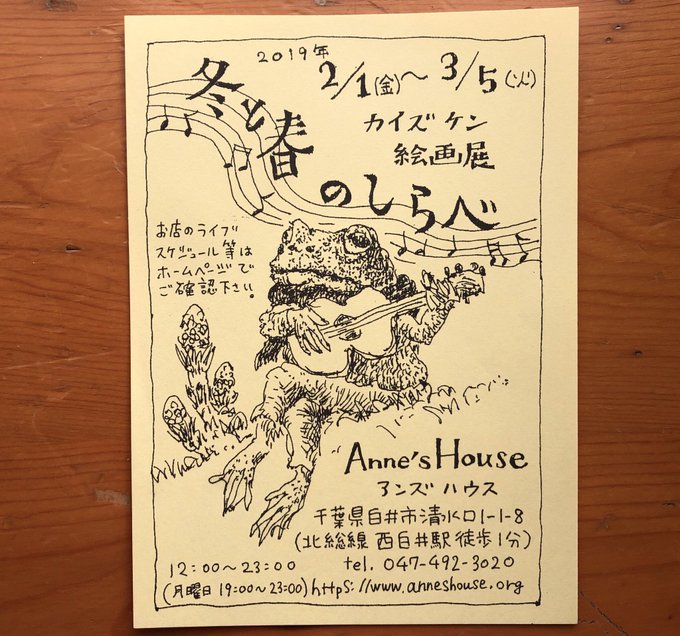 2019年
2/1(金)〜3/5(火)
冬と春
のしらべ
カイズケン
絵画展
お店のライブ
スケジュール等は
ホームページで
ご確認下さい。
Anne's House
アンズハウス
千葉県白井市清水口1-1-8
(北総線 西白井駅徒歩1分)
12:00〜23:00
tel. 047-492-3020
(月曜日 19:00〜23:00)
https://www.anneshouse.org